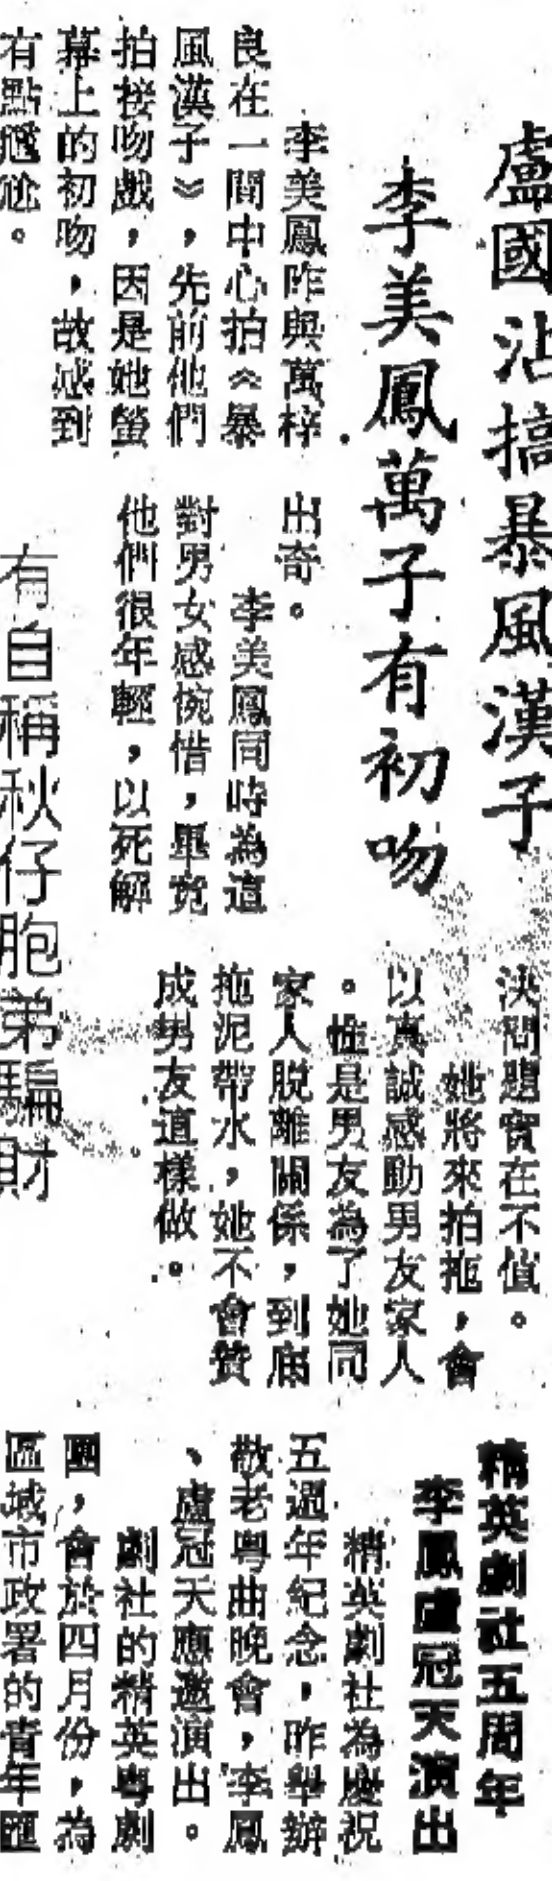 盧國沾搞暴風漢子
李美鳳萬子有初吻
李美鳳昨與萬梓
良在一間中心拍《暴
風漢子》，先前他們
拍接吻戲，因是她螢
幕上的初吻，故感到
有點尷尬。
出奇。
李美鳳同時為這
對男女感惋惜，畢竟
他們很年輕，以死解
決問題實在不值。
她將來拍拖，會
以真誠感動男友家人
。惟是男友為了她同
家人脫離關係，到底
拖泥帶水，她不會贊
成男友這樣做。
有自稱秋仔胞弟騙財
精英劇社五周年
李鳳盧冠天演出
精英劇社為慶祝
五週年紀念，昨舉辦
敬老粵曲晚會，李鳳
、盧冠天應邀演出。
劇社的精英粵劇
團，會於四月份，為
區域市政署的青年匯